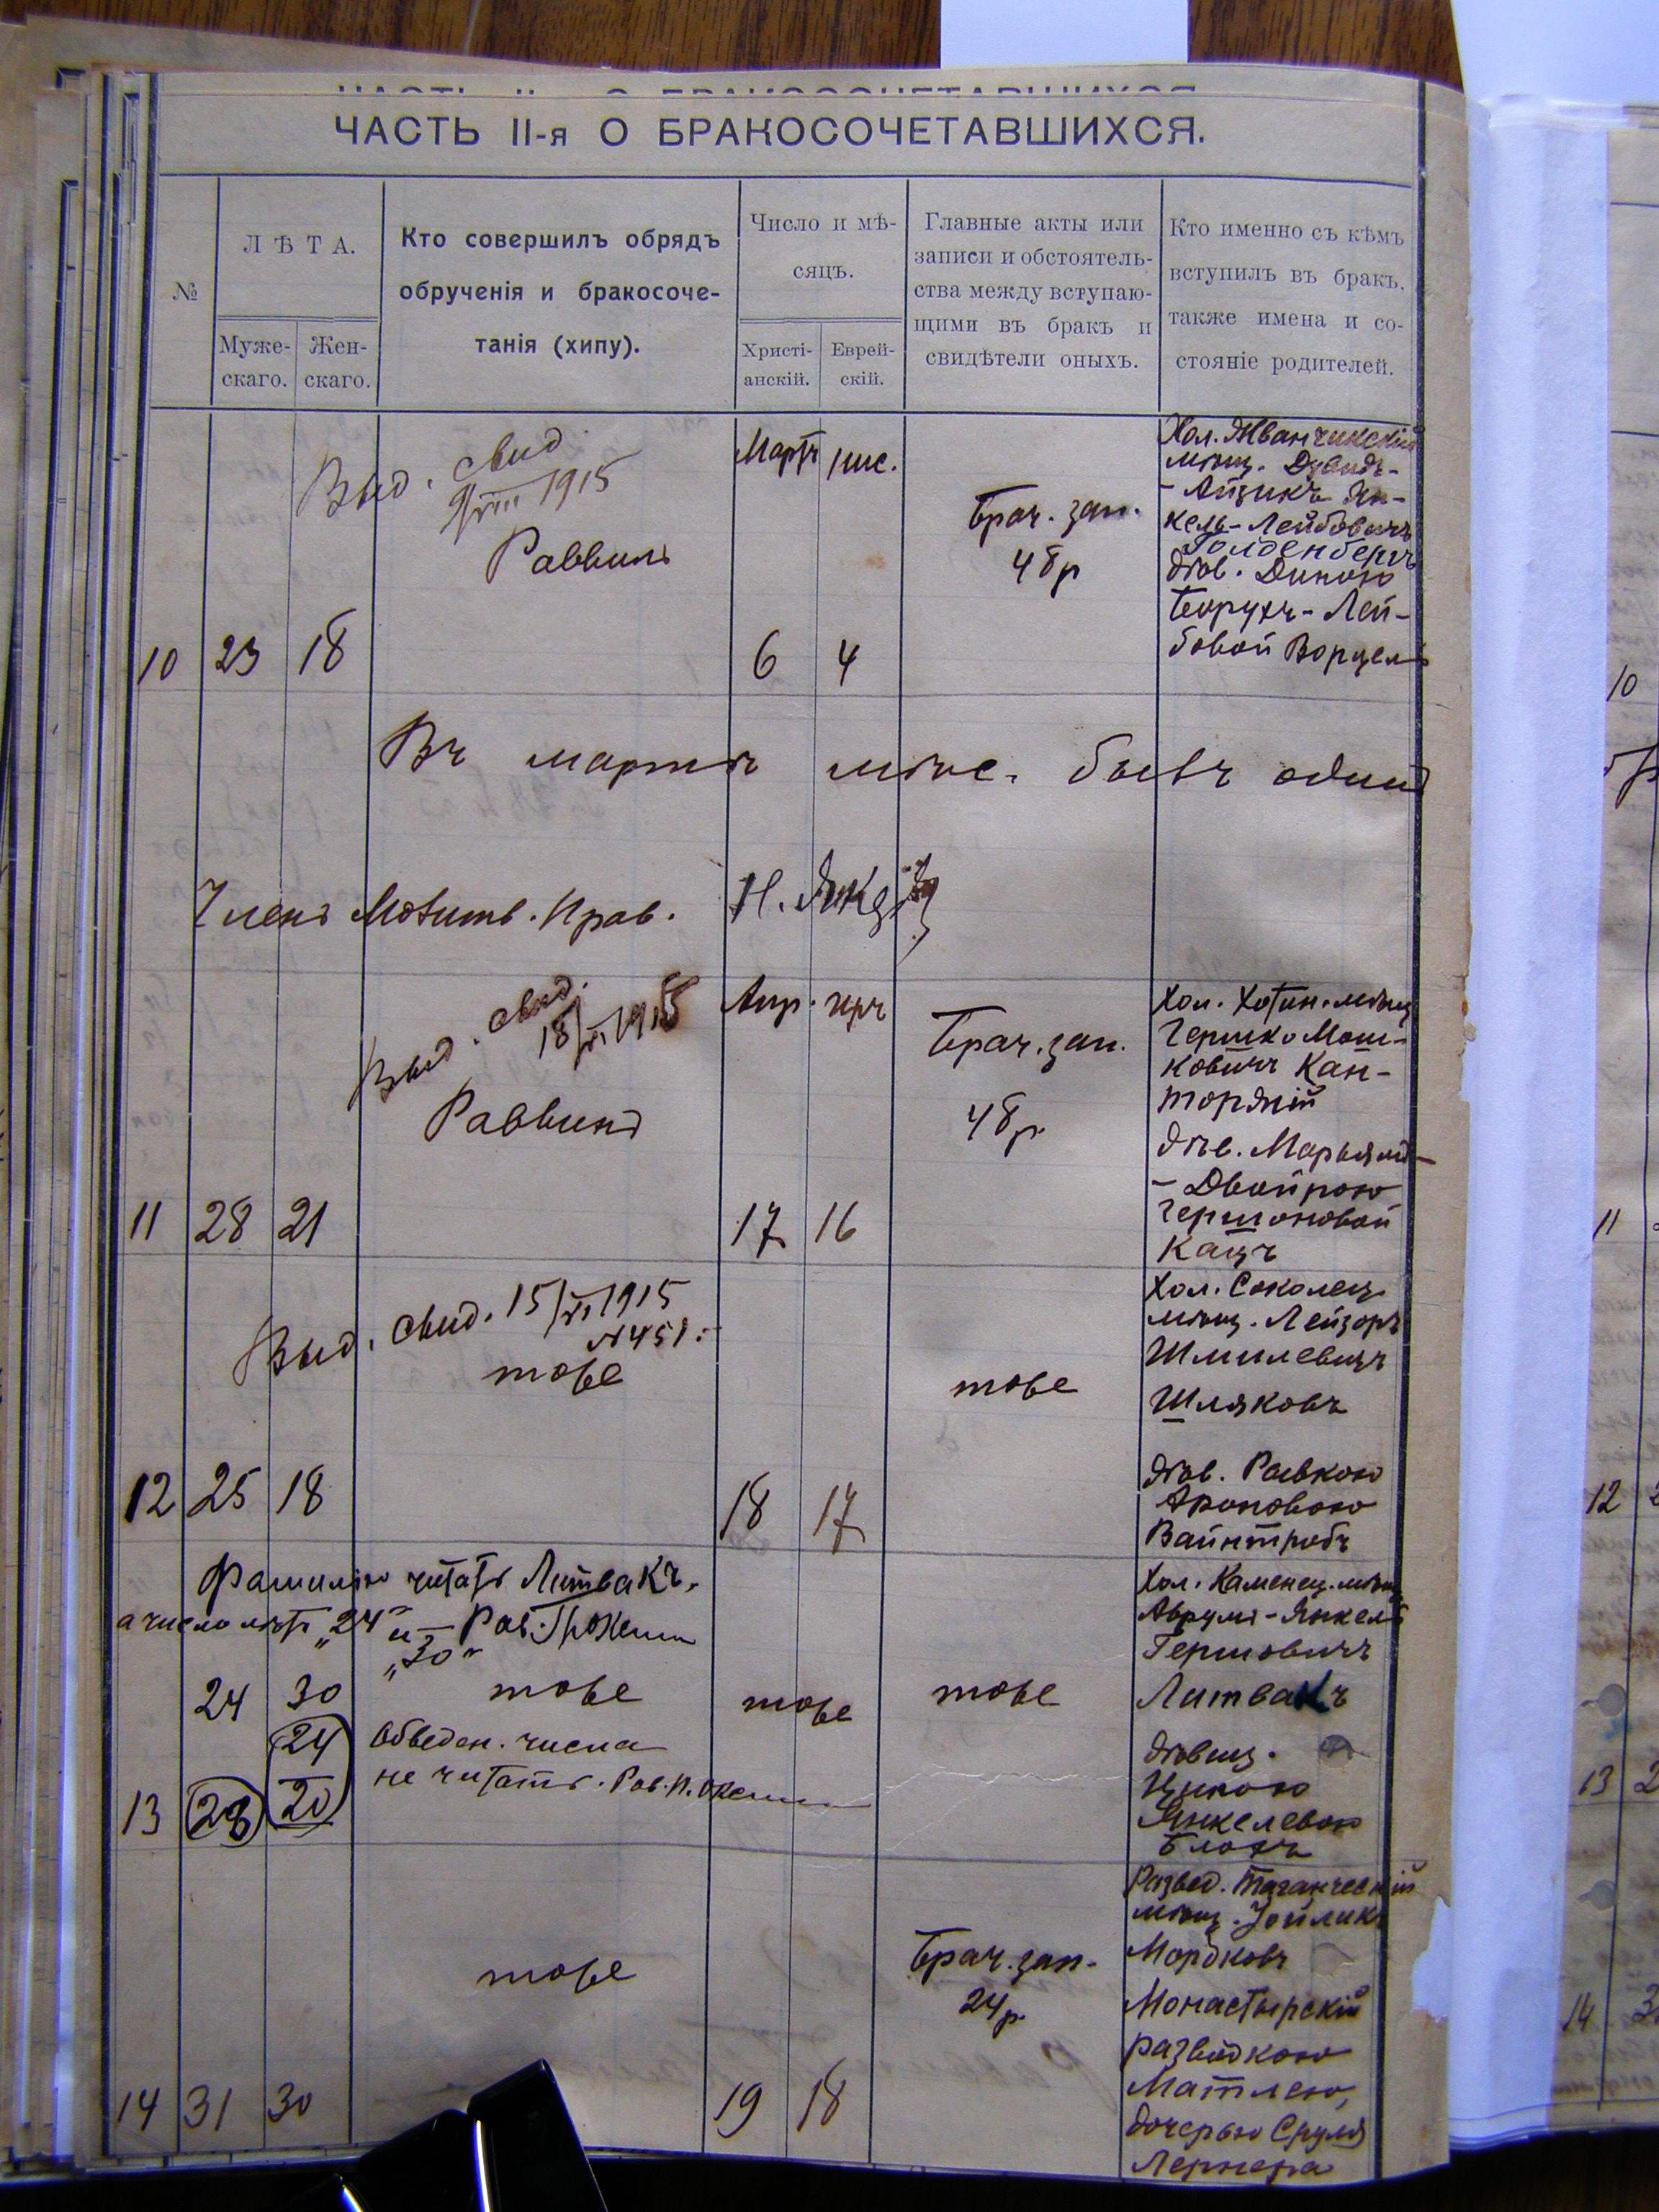 ЧАСТЬ II-я О БРАКОСОЧЕТАВШИХСЯ.
№
ЛѢТА.
Муже-
скаго.
Жен-
скаго.
Кто совершилъ обрядъ
обрученія и бракосоче-
танія (хипу).
Число и мѣ-
сяцъ.
Христі-
анскій.
Еврей-
скій.
Главные акты или
записи и обстоятель-
ства между вступаю-
щими въ бракъ и
свидѣтели оныхъ.
Кто именно съ кѣмъ
вступилъ въ бракъ,
также имена и со-
стояніе родителей.
Выд. свид
9/VIII 1915
Раввинъ
Мартъ
нис.
Брач. зап.
48р
Хол. Жванчикскій
мѣщ. Дувидъ-
-Айзикъ Ян-
кель-Лейбовичъ
Голденбергъ
дѣв. Диною
Борухъ-Лей-
бовой Ворцель
10 23 18 6 4
Въ мартѣ мѣс. былъ одинъ
Членъ Молитв. Прав.
Выд. свид.
18/VI 1915
Раввинъ
Апр. иръ
Брач. зап.
48р.
Хол. Хотин. мѣщ
Гершко Мош-
ковичъ Кан-
торскій
дѣв. Марьямъ-
-Двойрою
Гершоновой
Кацъ
11 28 21 17 16
Выд. свид. 15/VI 1915
№451.
тоже
тоже
Хол. Соколец.
мѣщ. Лейзоръ
Шмилевичъ
Шляковъ
дѣв. Ривкою
Ароновою
Вайнтробъ
12 25 18 18 17
Фамилію читать Литвакъ,
а число лѣтъ „24" и
„30"
24 30 тоже тоже тоже
24 Обведен. числа
не читать. Рав.
13 28 20
Хол. Каменец. мѣщ
Аврумъ-Янкель
Гершовичъ
Литвакъ
дѣвиц.
Ципою
Янкелевою
Блохъ
тоже
Брач. зап.
24р.
Развед. Таганческій
мѣщ. Зойликъ
Мордковъ
Монастырскій
разводкою
Матлею,
дочерью Сруля
Лернера
14 31 30 19 18
10
11
12
13 2
14 3